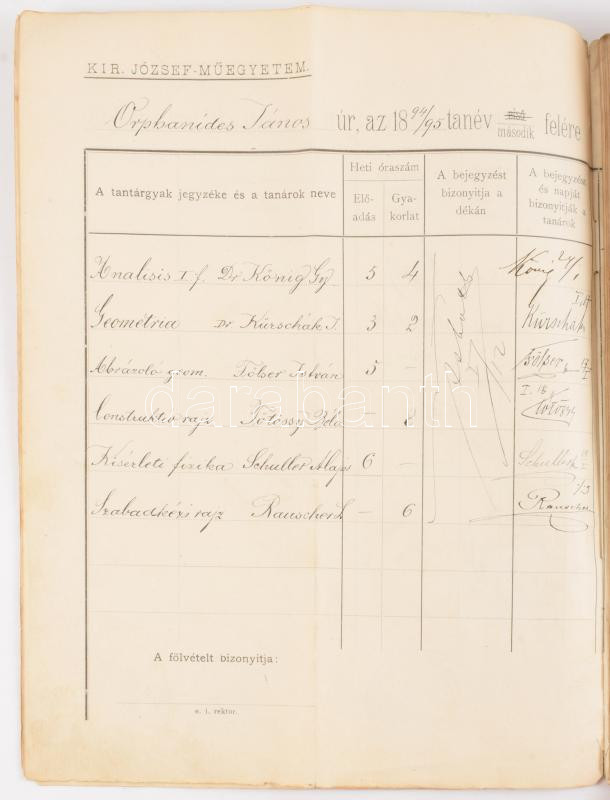 KIR. JÓZSEF-MŰEGYETEM.
Orphanides János úr, az 1894/95 tanév első második felére
A tantárgyak jegyzéke és a tanárok neve
Heti óraszám
Elő-adás
Gya-korlat
A bejegyzést bizonyitja a dékán
A bejegyzést és napját bizonyitják a tanárok
Analisis I f. Dr König Gy 5 4 König 24/1
Geometria Dr. Kürschák J. 3 2 Kürschák
Ábrázoló geom. Tölser István 5 – Tölser
Construktio rajz Tötössy Béla –
Kisérleti fizika Schuller Alajos 6 – Schuller
Szabadkézi rajz Rauscher L – 6 Rauscher
darabanth
A fölvételt bizonyitja:
e. i. rektor.